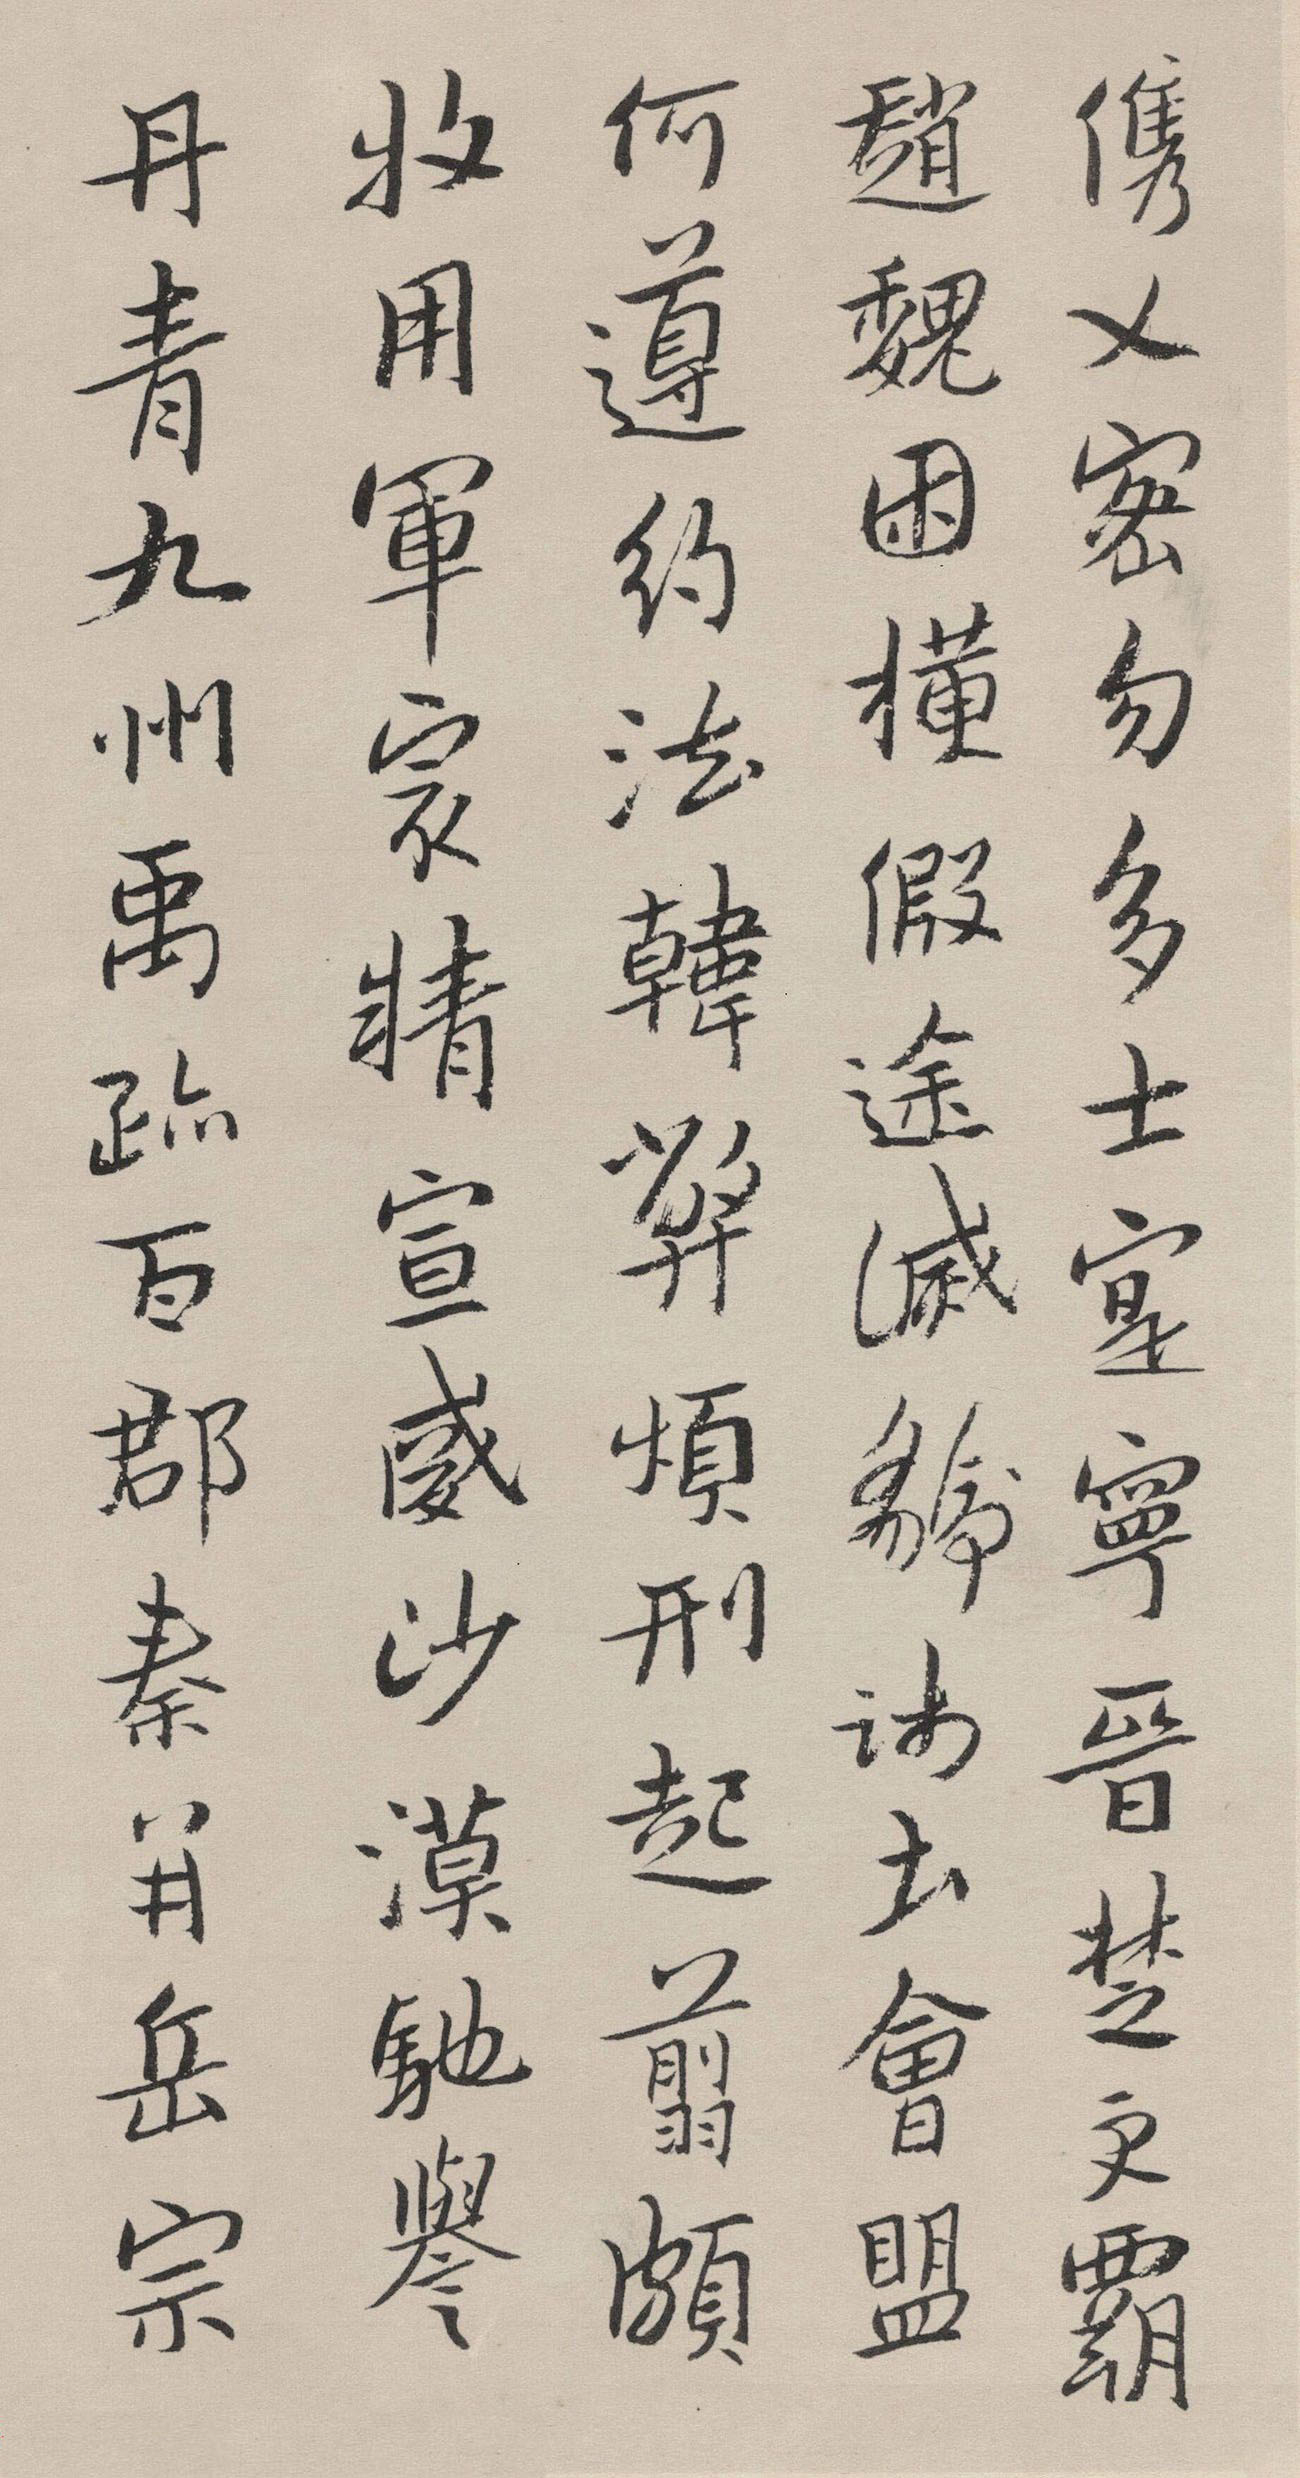 儁乂密勿多士寔寧晉楚更霸
趙魏困橫假途滅虢踐土會盟
何遵約法韓弊煩刑起翦頗
牧用軍最精宣威沙漠馳譽
丹青九州禹跡百郡秦并岳宗